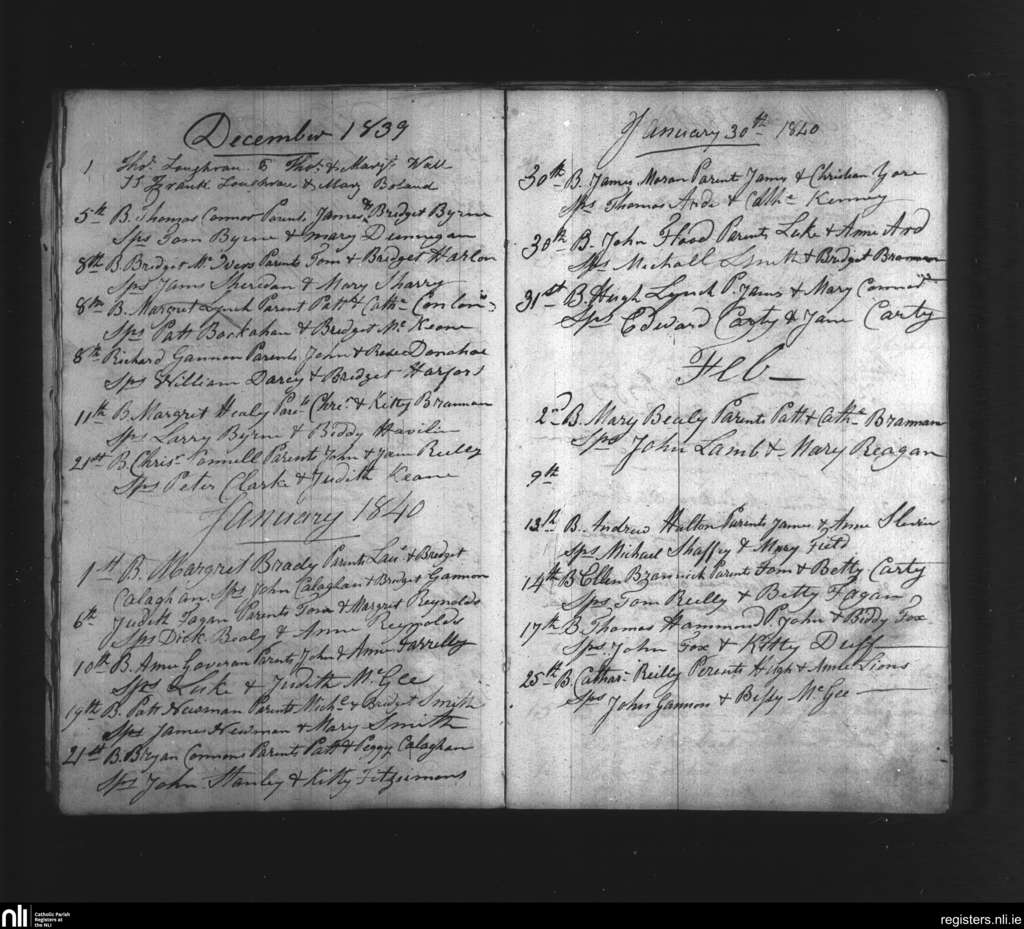 December 1839
1 Thos. Loughran of Thos. & Margt. Wall
SS Frank Loughran & Mary Boland
5th B. Thomas Connor Parents James & Bridget Byrne
Sps Tom Byrne & Mary Dunnegan
8th B Bridget Mc Ivers Parents Tom & Bridget Harlon
Sps Jams Sheridan & Mary Sharry
8th B. Margret Lynch Parent Patt & Cath. Conlon
Sps Patt Bockahan & Bridget Mc Keone
8th Richard Gannon Parents John & Rose Donahoe
Sps William Darcy & Bridget Harford
11th B. Margrit Healy Parts Chrs. & Kitty Brannan
Sps Larry Byrne & Biddy Havilin
21st B. Chrisr. Connell Parents John & Jane Reilly
Sps Peter Clarke & Judith Keane
January 1840
1st B. Margret Brady Parents Laur. & Bridget
Calaghan. Sps John Calaghan & Bridget Gannon
6th Judith Fagan Parents Tom & Margrit Reynolds
Sps Dick Bealy & Anne Reynolds
10th B. Anne Goveran Parents John & Anne Farrelly
Sps Luke & Judith McGee
19th B. Patt Newman Parents Michl. & Bridget Smith
Sps James Newman & Mary Smith
21st B. Bryan Connons Parents Patt & Peggy Calaghan
Sps John Stanley & Kitty Fitzsimons
January 30th 1840
30th B. James Moran Parent James & Christian Gore
Sps Thomas Arde & Cathe. Kenney
30th B. John Flood Parents Luke & Anne Ard
Sps Michall Smith & Bridget Brannan
31st B. Hugh Lynch P. Jams & Mary Connor
Sps Edward Carty & Jane Carty
Feb
2nd B. Mary Bealy Parents Patt & Cathe. Brannan
Sps John Lamb & Mary Reagan
9th
13th B. Andrew Halton Parents James & Anne Slevin
Sps Michael Shaffry & Mary Field
14th B Ellen Brannick Parent Tom & Betty Carty
Sps Tom Reilly & Betty Fagan
17th B. Thomas Hammond P. John & Biddy Fox
Sps. John Fox & Kitty Duff
25th B. Cathar. Reilly Perents Hugh & Anne Lions
Sps John Gannon & Bessy McGee
nli
Catholic Parish
Registers at
the NLI
registers.nli.ie